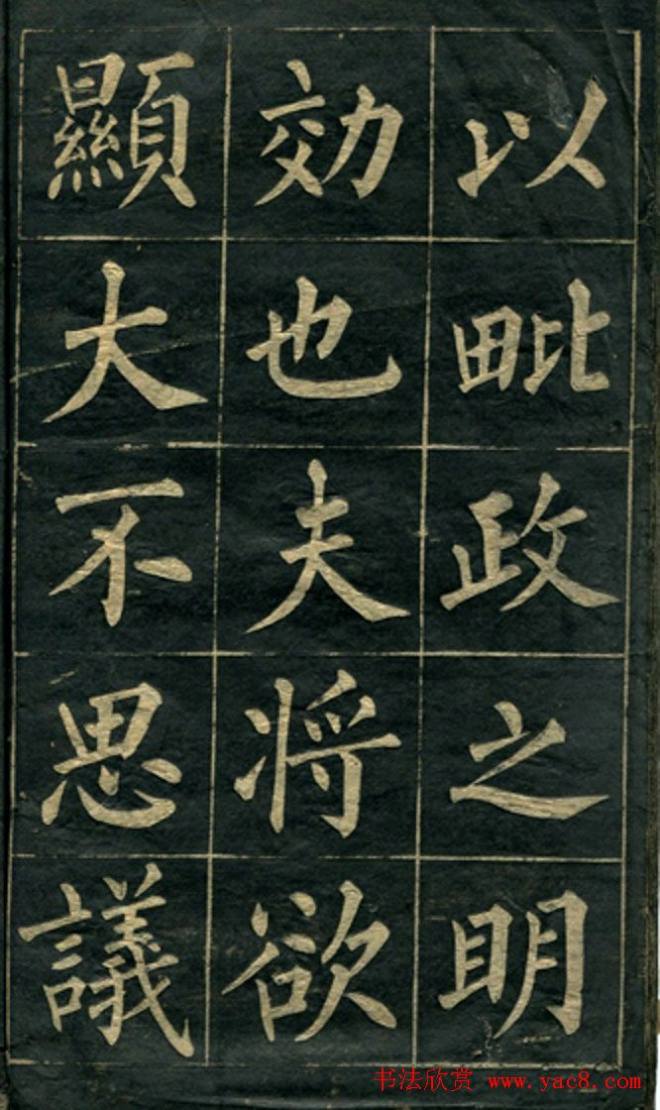 以毗政之明
効也夫将欲
顯大不思議
书法欣赏 www.yac8.com